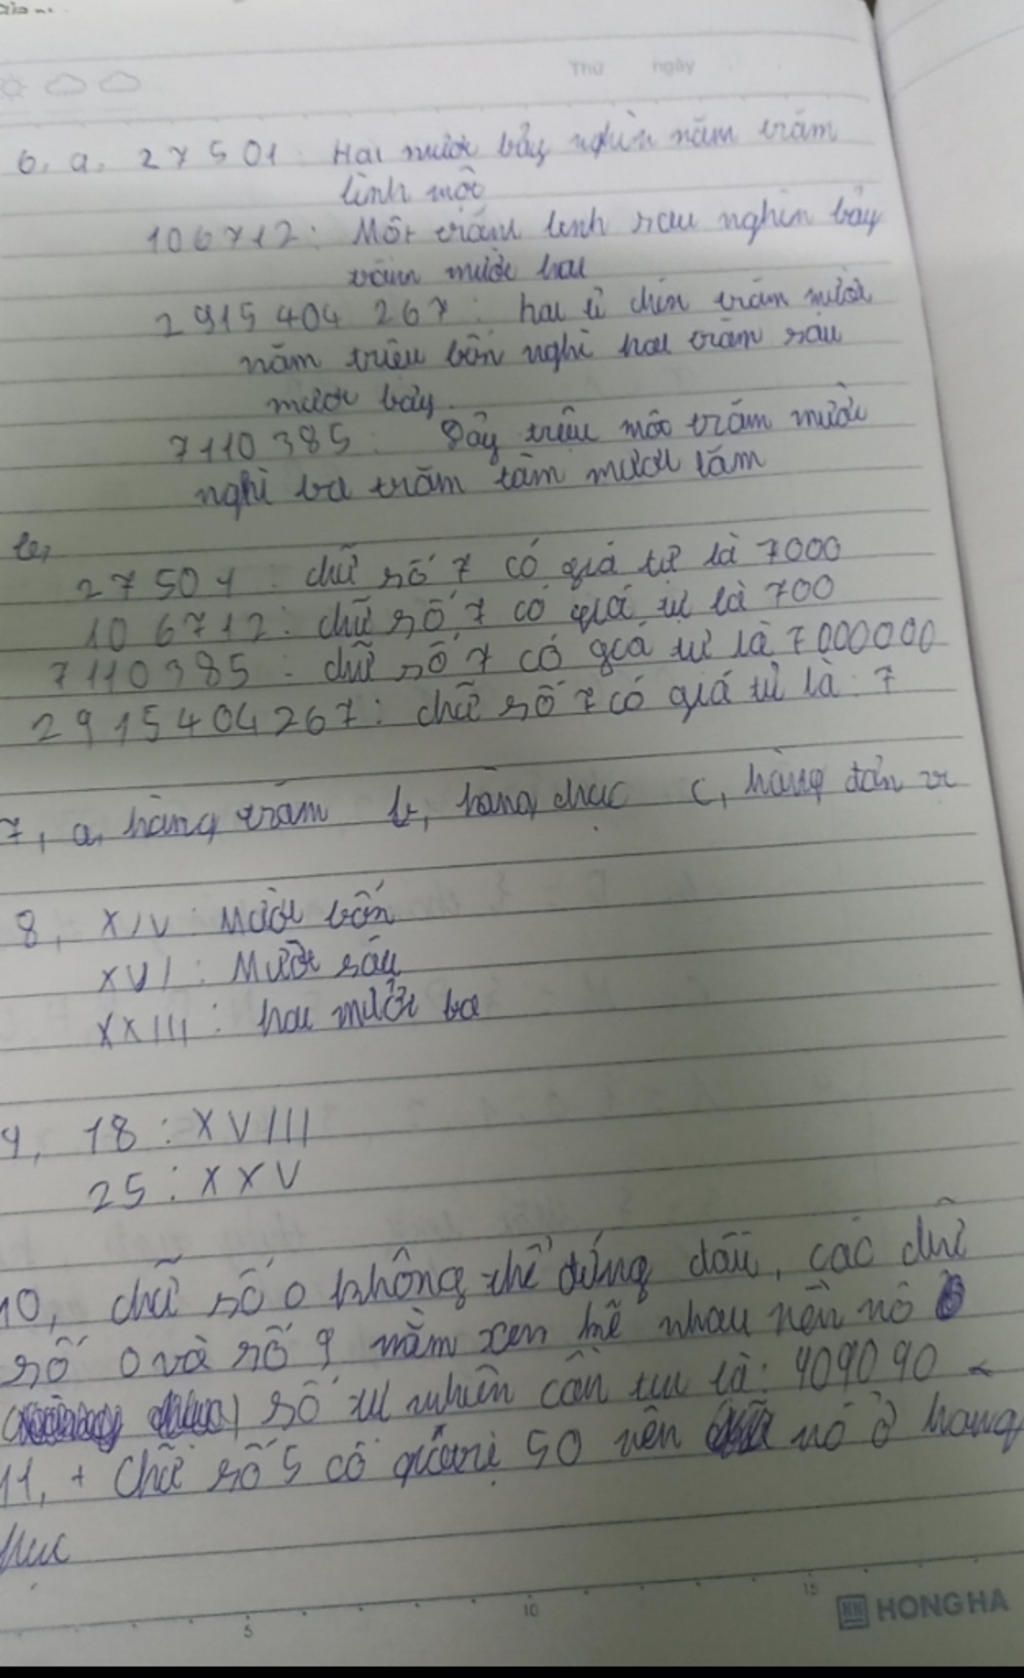 Thứ ngày
6, a, 27501: Hai mươi bảy nghìn năm trăm
linh một
106712: Một trăm linh sáu nghìn bảy
trăm mười hai
2915 404 267: hai tỉ chín trăm mười
năm triệu bốn nghì hai trăm sáu
mươi bảy.
7110 385: Bảy triệu một trăm mười
nghì ba trăm tám mươi lăm
27501: chữ số 7 có giá tử là 7000
106712: chữ số 7 có giá tử là 700
7110385: chữ số 7 có giá tử là 7000000
2915404267: chữ số 7 có giá tử là: 7
7, a, hàng trăm b, hàng chục c, hàng đơn vị
8, XIV: Mười bốn
XVI: Mười sáu
XXIII: hai mươi ba
9, 18: XVIII
25: XXV
10, chữ số 0 không thể đứng đầu, các chữ
số 0 và số 9 nằm xen kẽ nhau nên nó
số tự nhiên cần tìm là: 909090
11, + Chữ số 5 có giá trị 50 nên nó ở hàng
chục
5 10 15
HONG HA